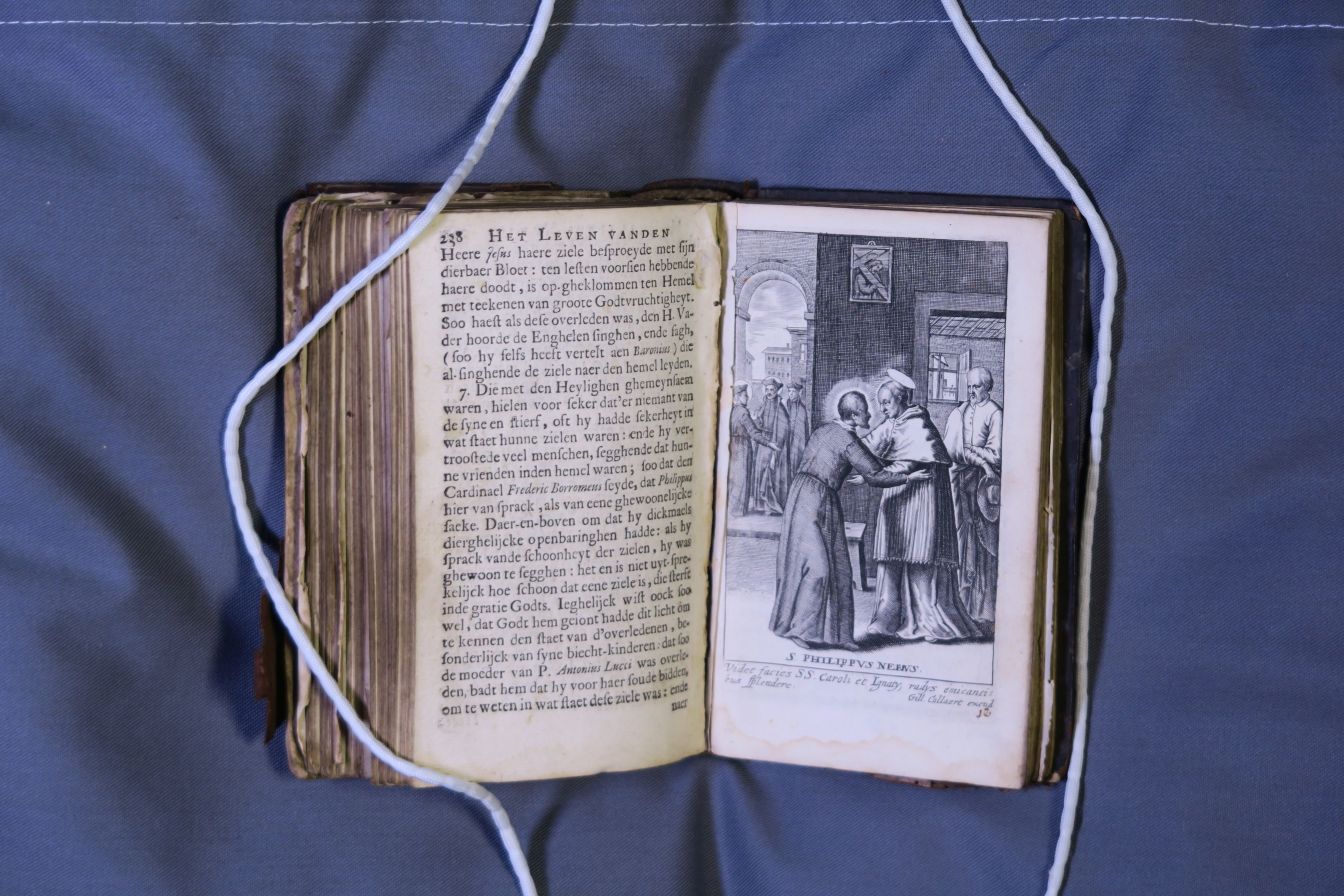 238 HET LEVEN VANDEN
Heere Jesus haere ziele besproeyde met sijn
dierbaer Bloet : ten lesten voorsien hebbende
haere doodt , is op-gheklommen ten Hemel
met teekenen van groote Godtvruchtigheyt.
Soo haest als dese overleden was , den H. Va-
der hoorde de Enghelen singhen , ende sagh,
( soo hy selfs heeft vertelt aen Baronius ) die
al-singhende de ziele naer den hemel leyden.
7. Die met den Heylighen ghemeynsaem
waren , hielen voor seker dat'er niemant van
de syne en stierf, oft hy hadde sekerheyt in
wat staet hunne zielen waren : ende hy ver-
troostede veel menschen, segghende dat hun-
ne vrienden inden hemel waren ; soo dat den
Cardinael Frederic Borromeus seyde, dat Philippus
hier van sprack , als van eene ghewoonelijcke
saeke. Daer-en-boven om dat hy dickmaels
dierghelijcke openbaringhen hadde: als hy
sprack vande schoonheyt der zielen , hy was
ghewoon te segghen : het en is niet uyt-spre-
kelijck hoe schoon dat eene ziele is , die sterft
inde gratie Godts. Ieghelijck wist oock soo
wel, dat Godt hem gejont hadde dit licht om
te kennen den staet van d'overledenen , be-
sonderlijck van syne biecht-kinderen : dat soo
de moeder van P. Antonius Lucci was overle-
den, badt hem dat hy voor haer soude bidden,
om te weten in wat staet dese ziele was : ende
naer
S. PHILIPPVS NERIVS.
Videt facies SS. Caroli et Ignatij, radijs emicanti:
bus splendere.
Gill. Collaert excud
12